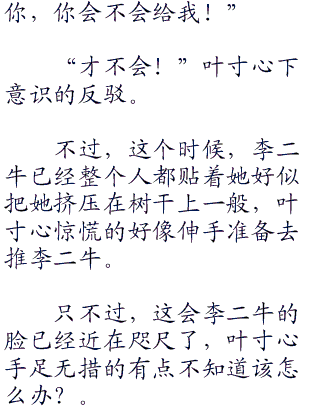 你，你会不会给我！”
“才不会！”叶寸心下
意识的反驳。
不过，这个时候，李二
牛已经整个人都贴着她好似
把她挤压在树干上一般，叶
寸心惊慌的好像伸手准备去
推李二牛。
只不过，这会李二牛的
脸已经近在咫尺了，叶寸心
手足无措的有点不知道该怎
么办？。